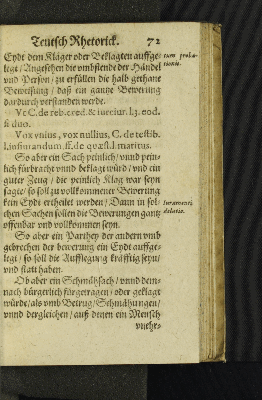 Teutsch Rhetorick. 72
Eydt dem Kläger oder Beklagten auffge-
legt / Angesehen die vmbstende der Händel
vnd Person / zu erfüllen die halb gethane
Beweisung / daß ein gantze Bewerung
dardurch verstanden werde.
Vt C. de reb. cred. & iureiur. l. 3. eod.
& duo.
Vox vnius, vox nullius, C. de testib.
l. iusiurandum. ff. de quæst. l. maritus.
So aber ein Sach peinlich / vnnd pein-
lich fürbracht vnnd beklagt würd / vnd ein
guter Zeug / die peinlich Klag war seyn
sagte / so soll zu vollkommener Bewerung
kein Eydt ertheilet werden / Dann in sol-
chen Sachen sollen die Bewerungen gantz
offenbar vnd vollkommen seyn.
So aber ein Parthey der andern vmb
gebrechen der bewerung ein Eydt auffge-
legt / so soll die Aufflegung kräfftig seyn /
vnd statt haben.
Ob aber ein Schmähsach / vnnd dem-
nach bürgerlich fürgetragen / oder geklagt
würde / als vmb Betrug / Schmähungen /
vnnd dergleichen / auß denen ein Mensch
vnehr-
cum proba-
tionis.
Iuramenti
delatio.